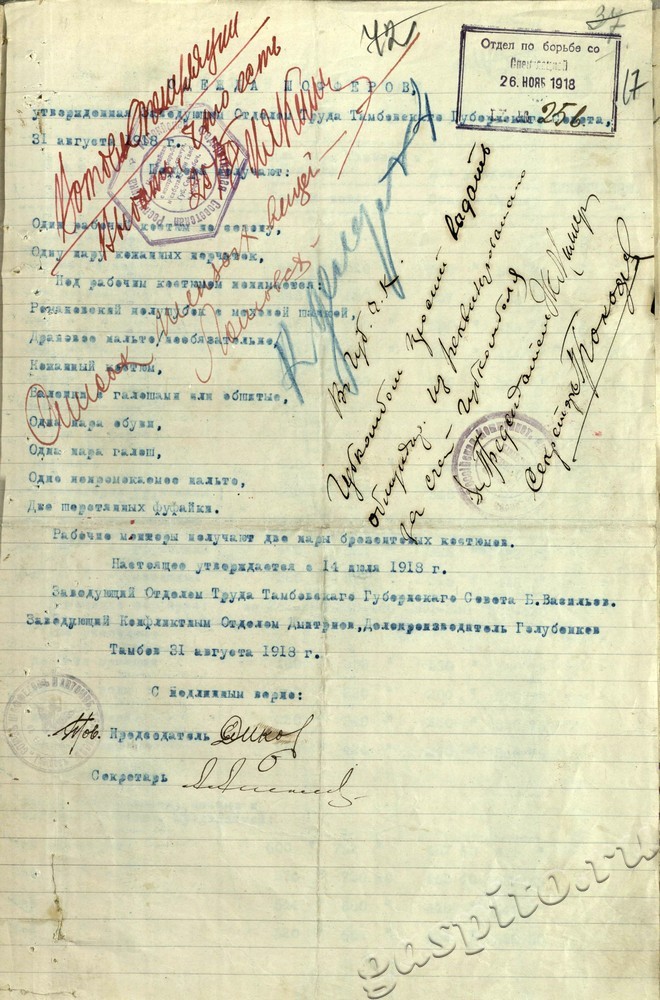 72
37
17
Отдел по борьбе со
Спекуляцией
26 НОЯБ 1918
256
ОДЕЖДА ШОФЕРОВ,
утвержденная Заведующим Отделом Труда Тамбовскаго Губернскаго Совета,
31 августа 1918 г.
получают:
Один рабочий костюм по сезону,
Одну пару кожанных перчаток,
Под рабочим костюмом понимается:
Романовский полушубок с меховой шапкой,
Драповое пальто необязательно,
Кожанный костюм,
Валенки с галошами или обшитые,
Одна пара обуви,
Одна пара галош,
Одно непромокаемое пальто,
Две шерстянных фуфайки.
Рабочие монтеры получают две пары брезентовых костюмов.
Настоящее утверждается с 14 июля 1918 г.
Заведующий Отделом Труда Тамбовскаго Губернскаго Совета Б.Васильев.
Заведующий Конфликтным Отделом Дмитриев, Делопроизводитель Голубенков
Тамбов 31 августа 1918 г.
С подлинным верно:
Тов. Председатель
Секретарь
В Губ. Ч.К.
Губкомбол просит выдать
из реквизировано
за счет Губкомбола
Председатель
Секретарь
Список
вещей
gaspito.ru